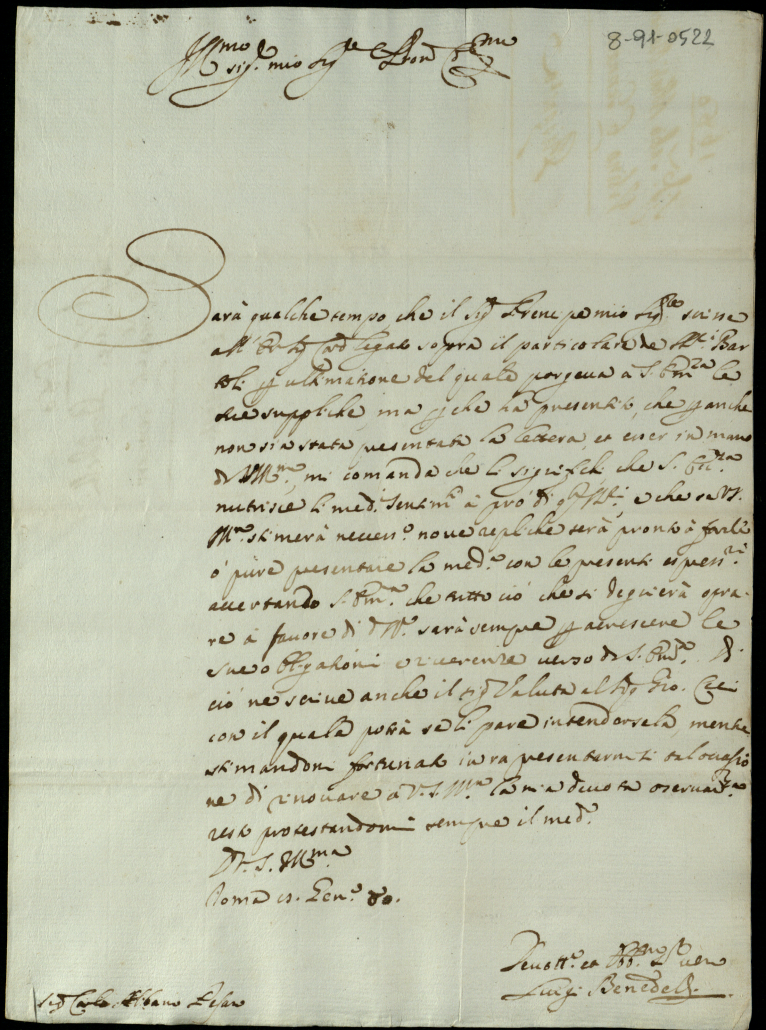 8-91-0522
Ill.mo sig.r mio Sig.re e Pron Col.mo
Sarà qualche tempo che il sig.r Prencipe mio Sig.re scrisse
all' Em. Sig. Card. Legato sopra il particolare de M.ti Bar
toli p ultimatione del quale porgeva à S. Em.za le
sue suppliche, ma p che hà presentito, che p anche
non sia stata presentata la lettera, et esser in mano
di V.S. Ill.ma, mi comanda che li significhi, che S. Ecc.za
nutrisce li med.i sentim.ti à prò di q.to M.ti, e che se V.S.
Ill.ma stimerà necess.o nove repliche serà pronto à farle
ò pure presentare la med.a con le presenti espress.ni
accertando S. Em.a che tutto ciò che si degnerà opra
re à favore di d.o M.ti sarà sempre p accrescere le
sue obligationi e riverenze verso di S. Em.za. Di
ciò ne scrive anche il sig. Valuta al Sig. Gio.
con il quale potrà se li pare intendersela, mentre
stimandomi fortunato in rapresentarmesi tal occasio
ne di rinovare à V.S. Ill.ma la mia devota osservanza
resto protestandomi sempre il med.o
D. V. S. Ill.ma
Roma Gen.o 80.
Devott.o et Obb.mo Ser. vero
Luigi Benedetti
Sig. Carlo Albano Pesaro